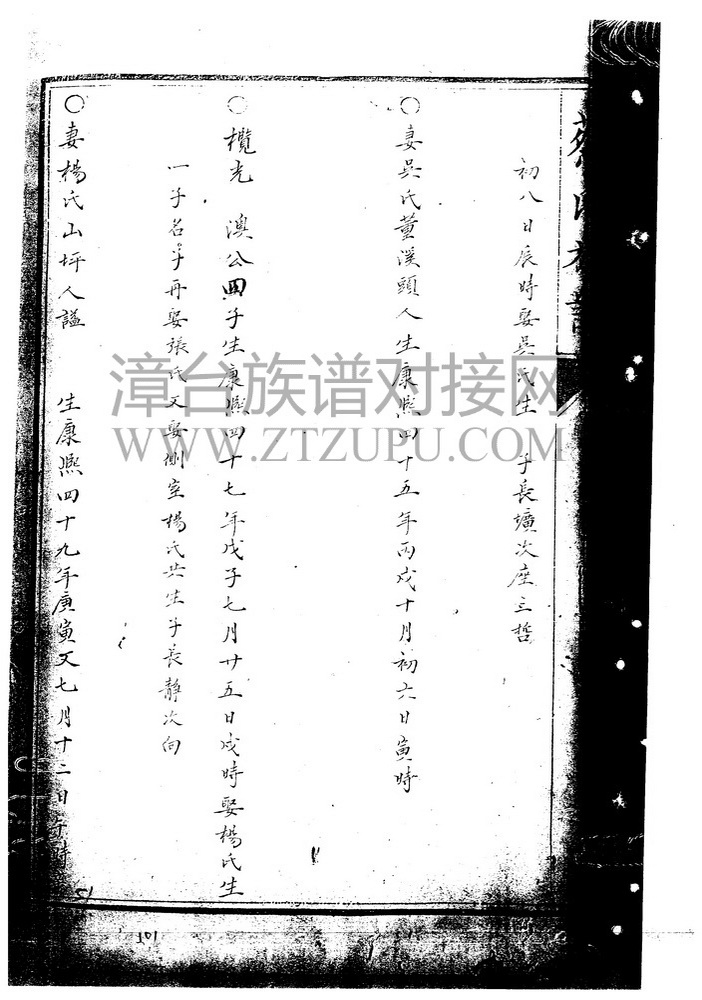 初八日辰時娶吳氏生 子長壙次座三哲
○妻吳氏董溪頭人生康熙四十五年丙戌十月初六日寅時
○欖光 澳公四子生康熙四十七年戊子七月廿五日戌時娶楊氏生
一子名孚再娶張氏又娶側室楊氏共生子長靜次向
○妻楊氏山坪人諡 生康熙四十九年庚寅又七月十二日子時
漳台族谱对接网
WWW.ZTZUPU.COM
101